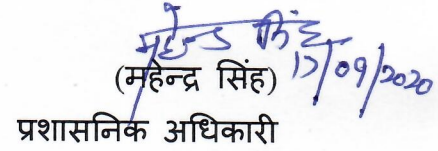 महेन्द्र सिंह
17/09/2020
(महेन्द्र सिंह)
प्रशासनिक अधिकारी